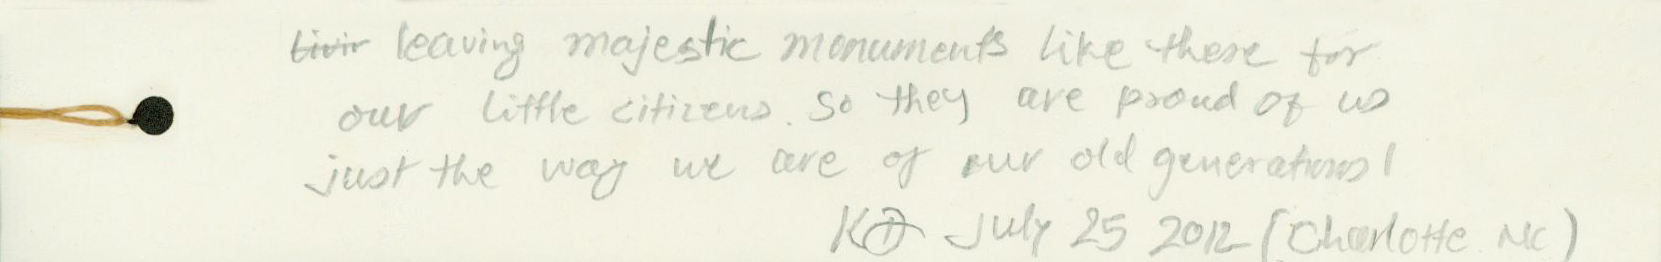 leaving majestic monuments like these for
our little citizens. So they are proud of us
just the way we are of our old generations!
July 25 2012 (Charlotte NC)